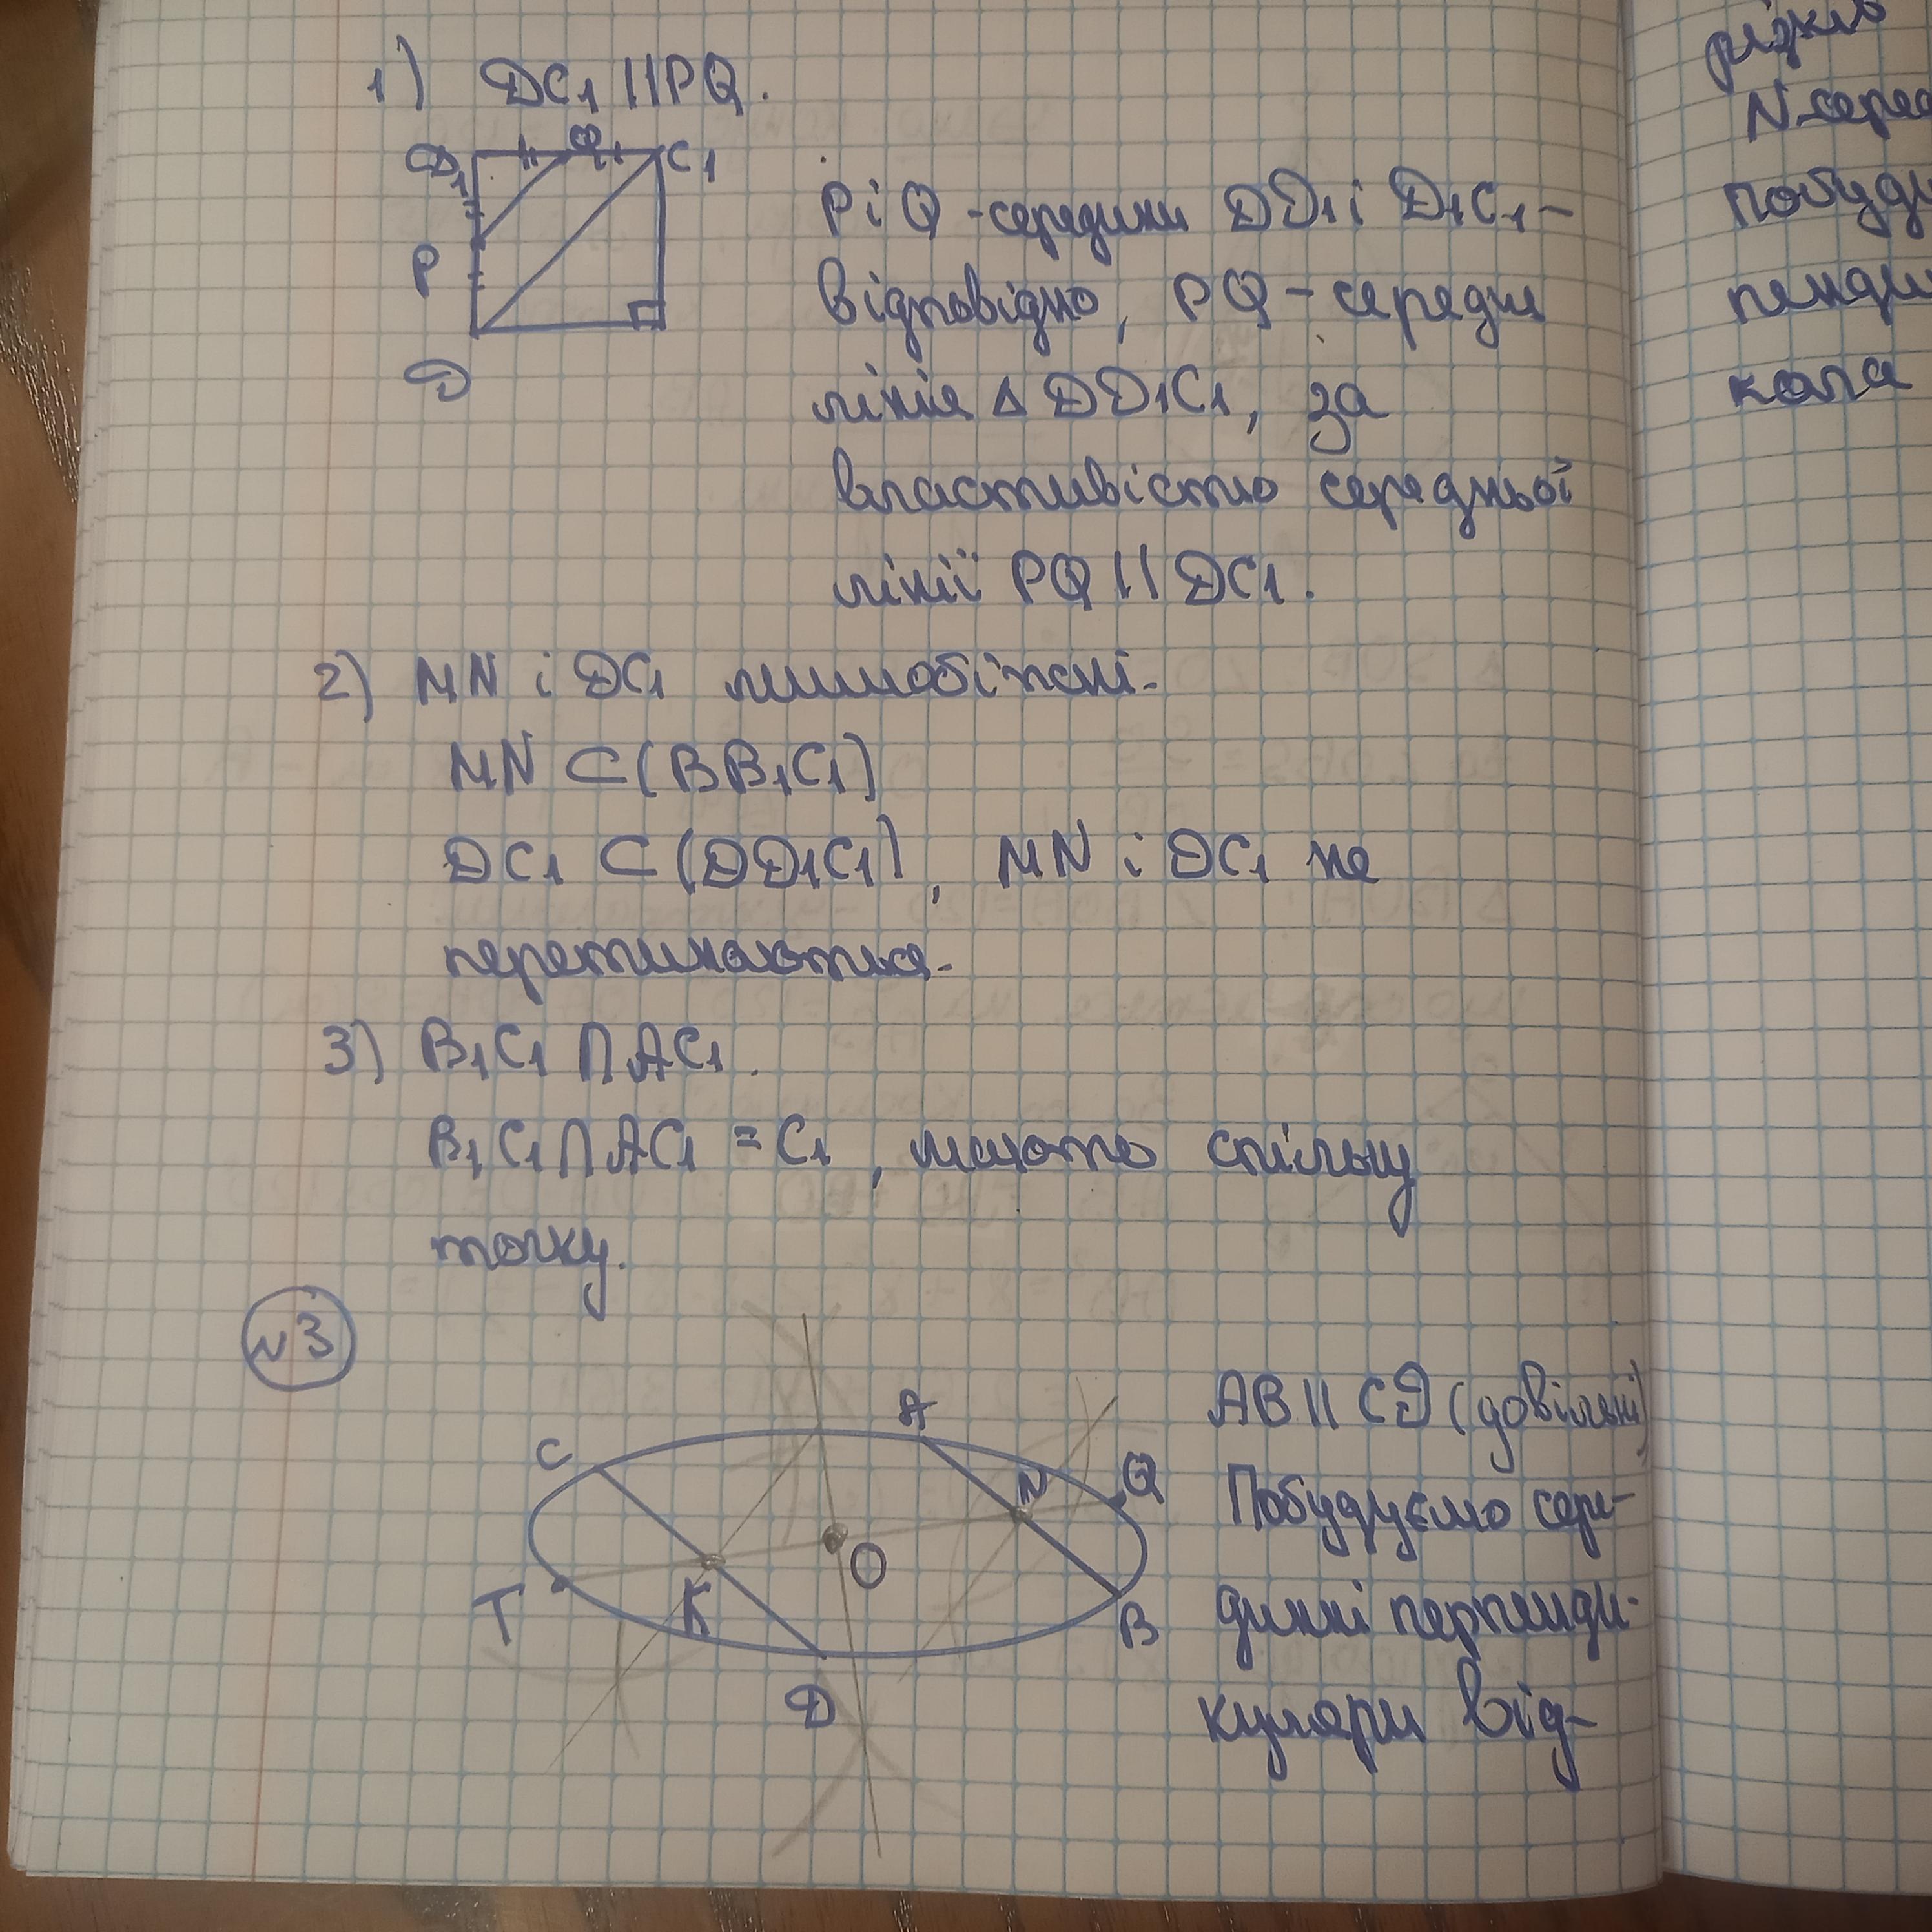 1) DC₁ || PQ.
D₁ Q C₁
P
D
P і Q - середини DD₁ і D₁C₁ -
відповідно, PQ - середня
лінія Δ DD₁C₁, за
властивістю середньої
лінії PQ || DC₁.
2) MN і DC₁ мимобіжні.
MN ⊂ (BB₁C₁)
DC₁ ⊂ (DD₁C₁), MN і DC₁ не
перетинаються.
3) B₁C₁ ∩ AC₁.
B₁C₁ ∩ AC₁ = C₁, мають спільну
точку.
№3
C A Q
N
O
T K B
D
AB || CD (довільні)
Побудуємо сере-
динні перпенди-
куляри від-
різків
N-серед
побуду
пенди
кола